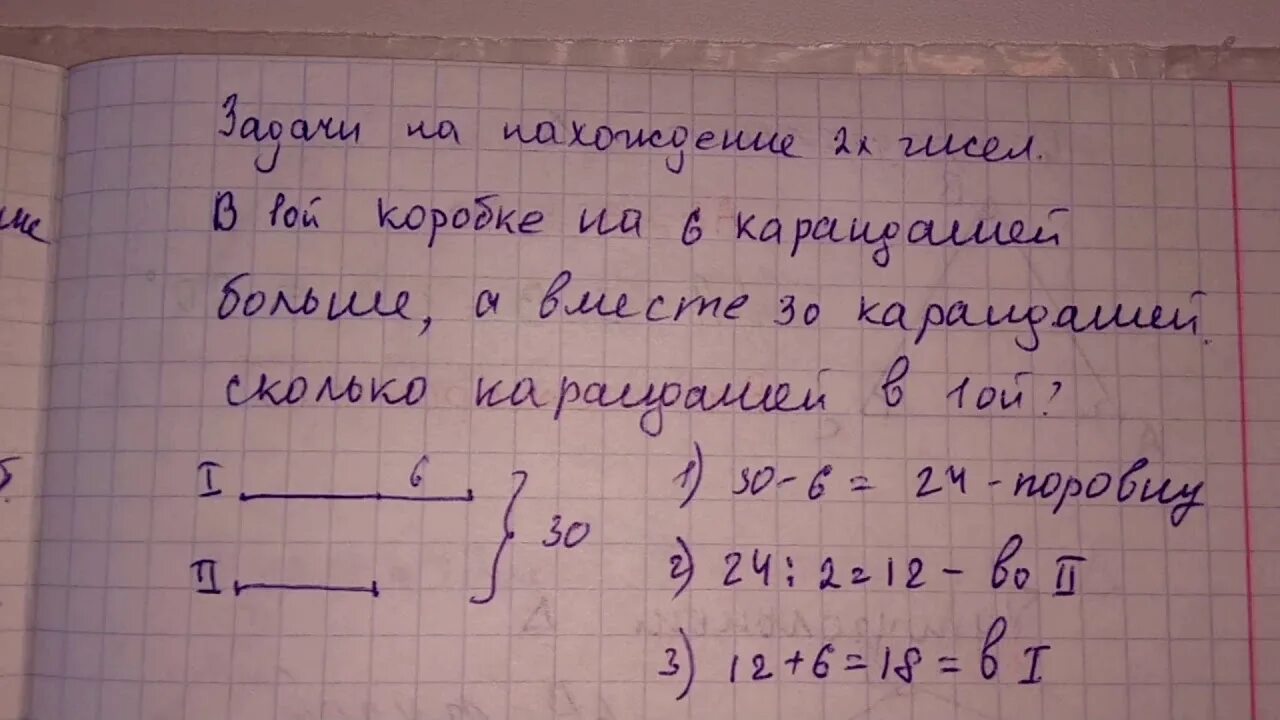 Задачи на нахождение 2х чисел.
В 1ой коробке на 6 карандашей
больше, а вместе 30 карандашей.
сколько карандашей в 1ой?
I 6
II
30
1) 30-6= 24 - поровну
2) 24:2=12 - во II
3) 12+6=18= в I